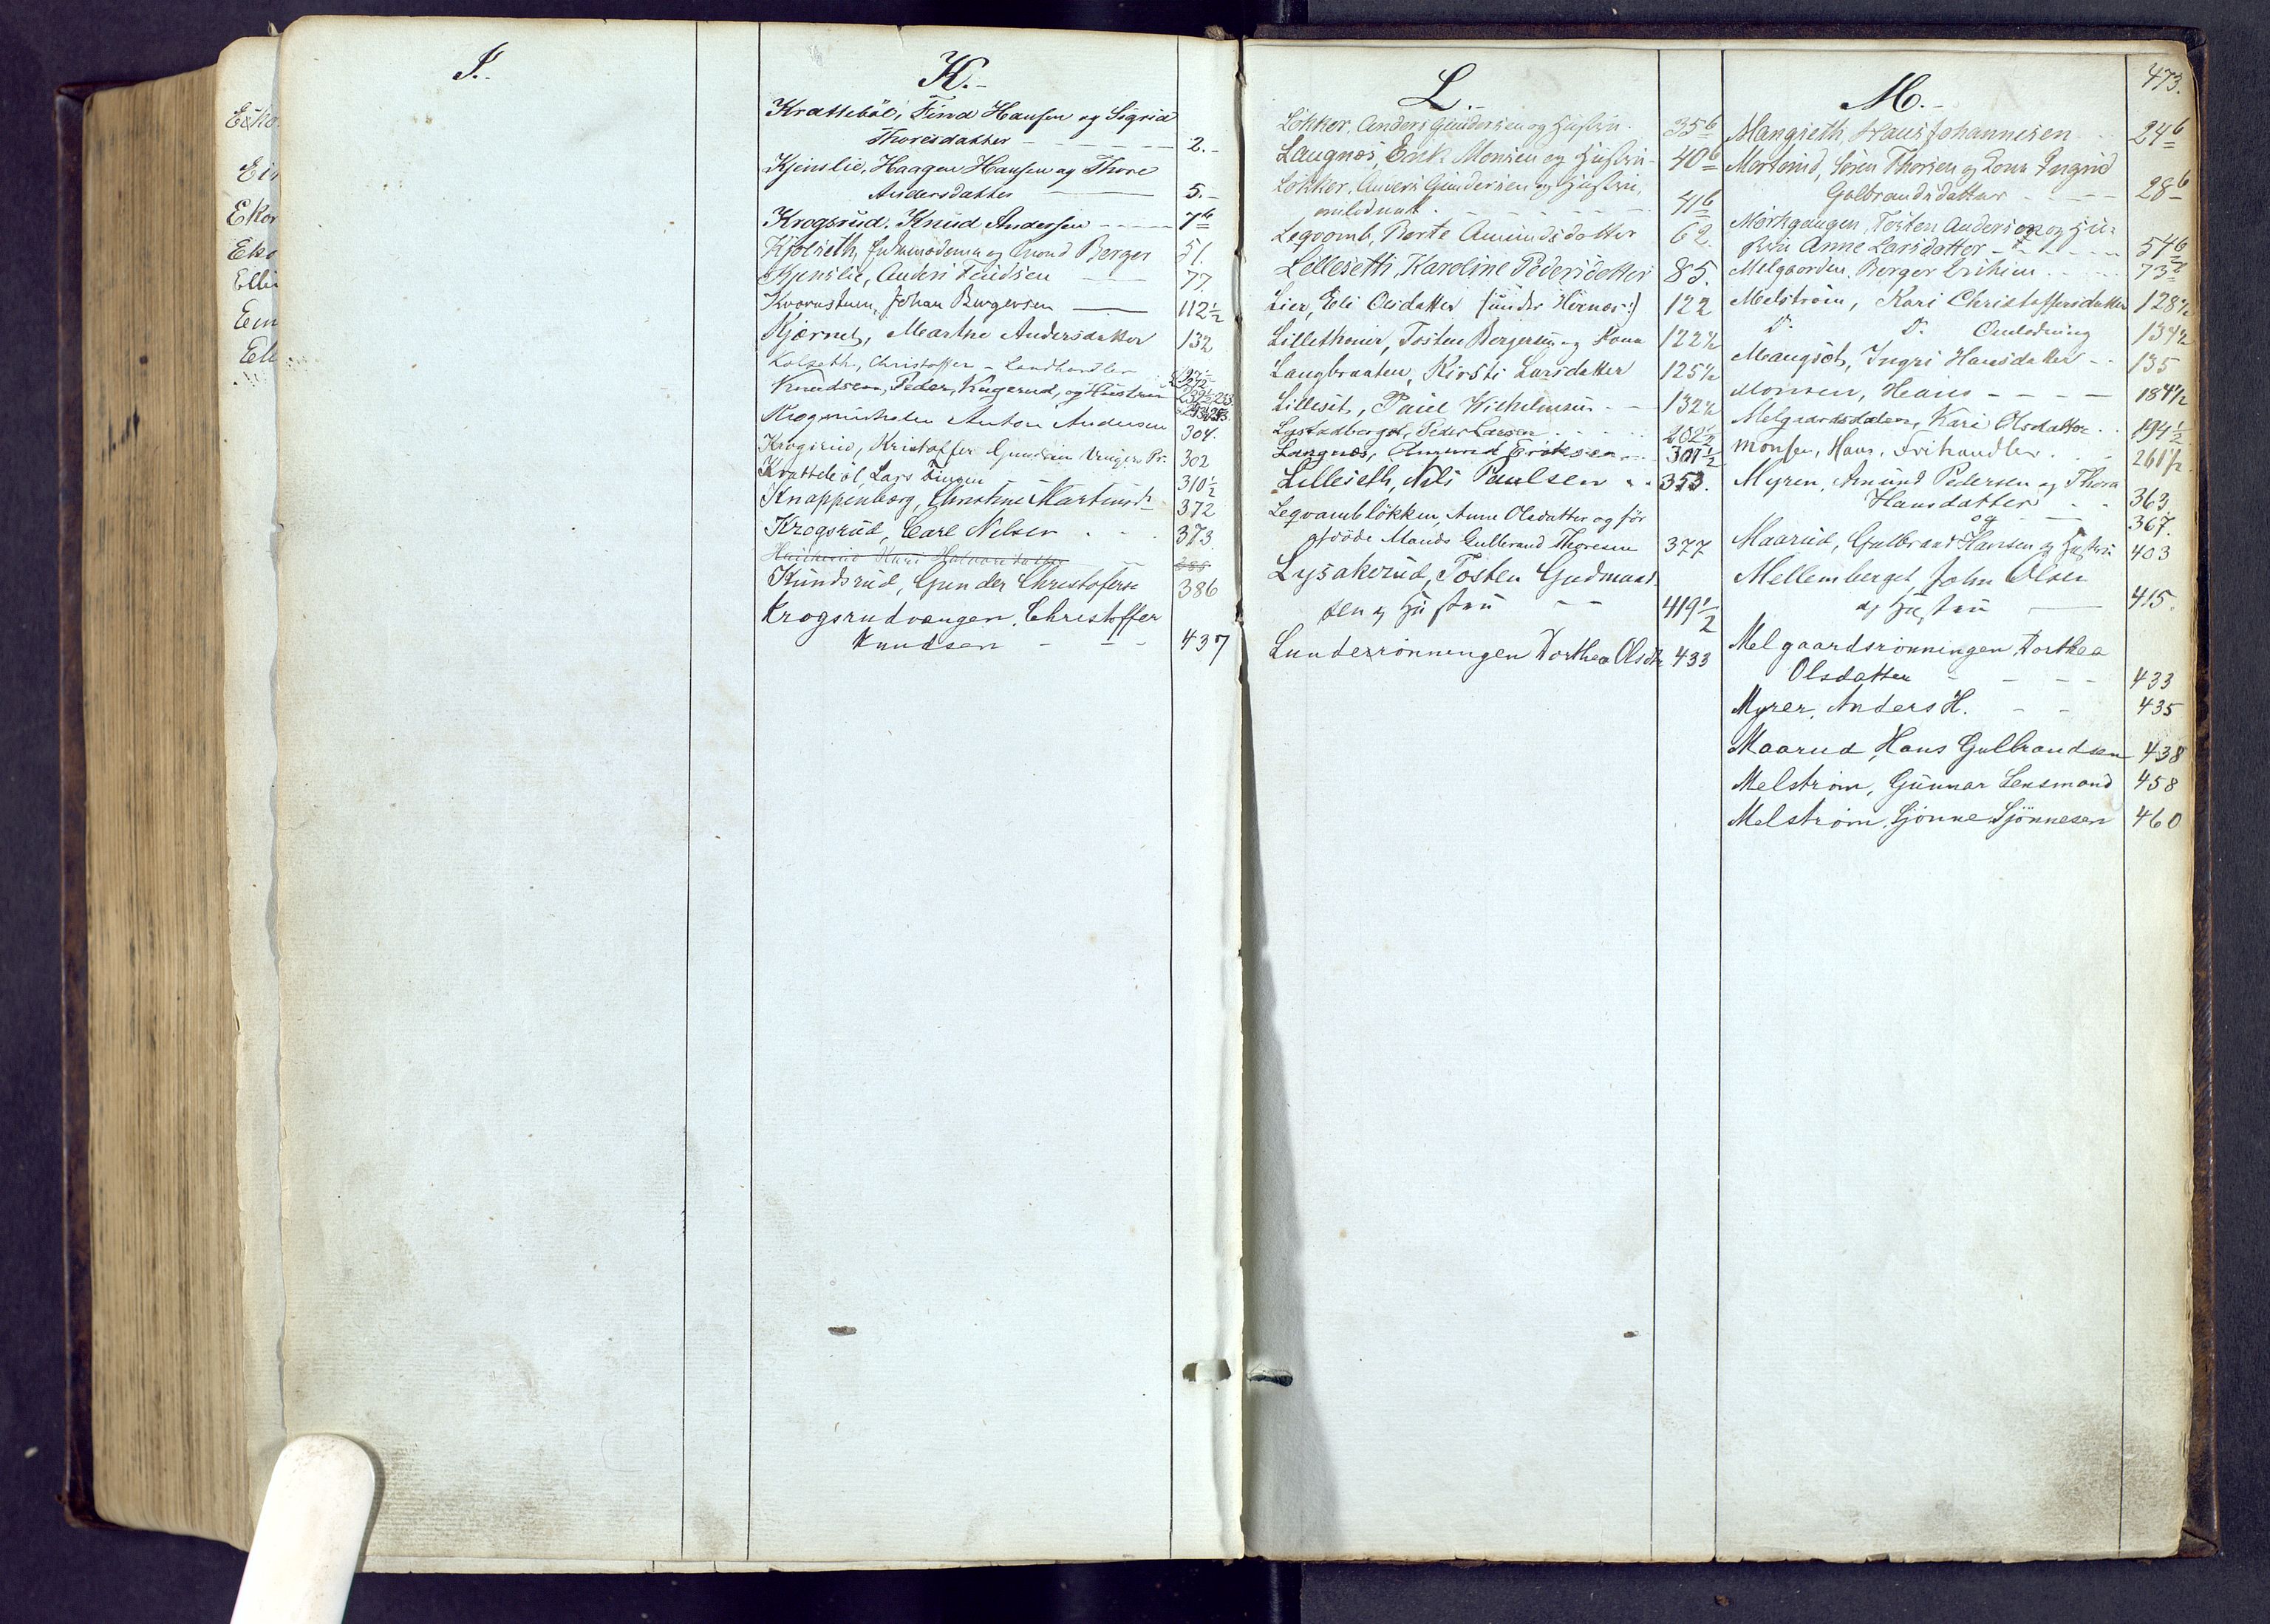 Eko
Ekor
Eko
Elli
J.
K.
Krattebøl, Find Hansen og Sigrid
Thoresdatter 2.
Kjenslie, Haagen Hansen og Thore
Andersdatter 5.
Krogsrud. Knud Andersen 7b
Kjølseth, Berger 51.
Kjenslie, Anders Findsen 77
Johan Burgersen 112½
Kjærnes, Marthe Andersdatter 132
Kolseth, Christoffer - Landhandler
Knudsen, Peder, Kngerud, og Hustru
Anton Andersen 304.
Krogsrud, Kristoffer 302
Krattebøl, Lars Finsen 310½
Knappenborg, Christine Martinsdr 372
Krogsrud, Carl Nelsen 373
Kundsrud, Gunder Christofers 386
Krogsrudvangen, Christoffer
Knudsen - - - 437
L.
Løkker, Anders Gundersen og Hustru 35b
Langnæs, Erik Monsen og Hustru 40b
Løkker, Anders Gundersen og Hustru,
omlodnet 41b
Leqvamb, Berte Amundsdatter 62.
Lillesetth, Karoline Pedersdatter 85.
Lier, Eli Olsdatter (under Hernes:) 122
Tosten Bergersen og Kona 122½
Langbraaten, Kirsti Larsdatter 125½
Lilleset, Paul Wilhelmsen - - 132½
Lystadberget, Peder Larsen 202½
Langnæs, Amund Eriksen 301½
Lilleseth, Nils Paulsen 353.
Leqvambløkken, Anne Olsdatter og før
afdøde Mands Gulbrand Thoresen 377
Lysakerud, Tosten Gudmund
sen og Hustru - - 419½
Lunderønningen Dorthea Olsdtr 433
473.
M.
Mangseth, Hans Johannesen 24b
Morterud, Søren Thorsen og Kona Ingrid
Gulbrandsdatter 28b
Mørkgangen, Tosten Andersen og Hu-
stru Anne Larsdatter 54b
Melgaarden, Berger Eriksen 73b
Melstrøm, Kari Christoffersdatter 128½
D. D. Omlodning 134½
Mangset, Ingri Hansdatter - - 135
Monsen, Hans - - - - 184½
Melgaardsdalen, Kari Olsdatter 194½
Monsen, Hans, Frihandler 261½
Myren, Amund Pedersen og Thora
Hansdatter 363
og 367.
Maarud, Gulbrand Hansen og Hustru 403
Mellemberget John Olsen
og Hustru 415.
Melgaardsrønningen Dorthea
Olsdatter - - - - 433
Myrer, Anders H. - - 435
Maarud, Hans Gulbrandsen 438
Melstrøm, Gunnar Lensmand 458
Melstrøm, Gjønne Sjønnesen 460